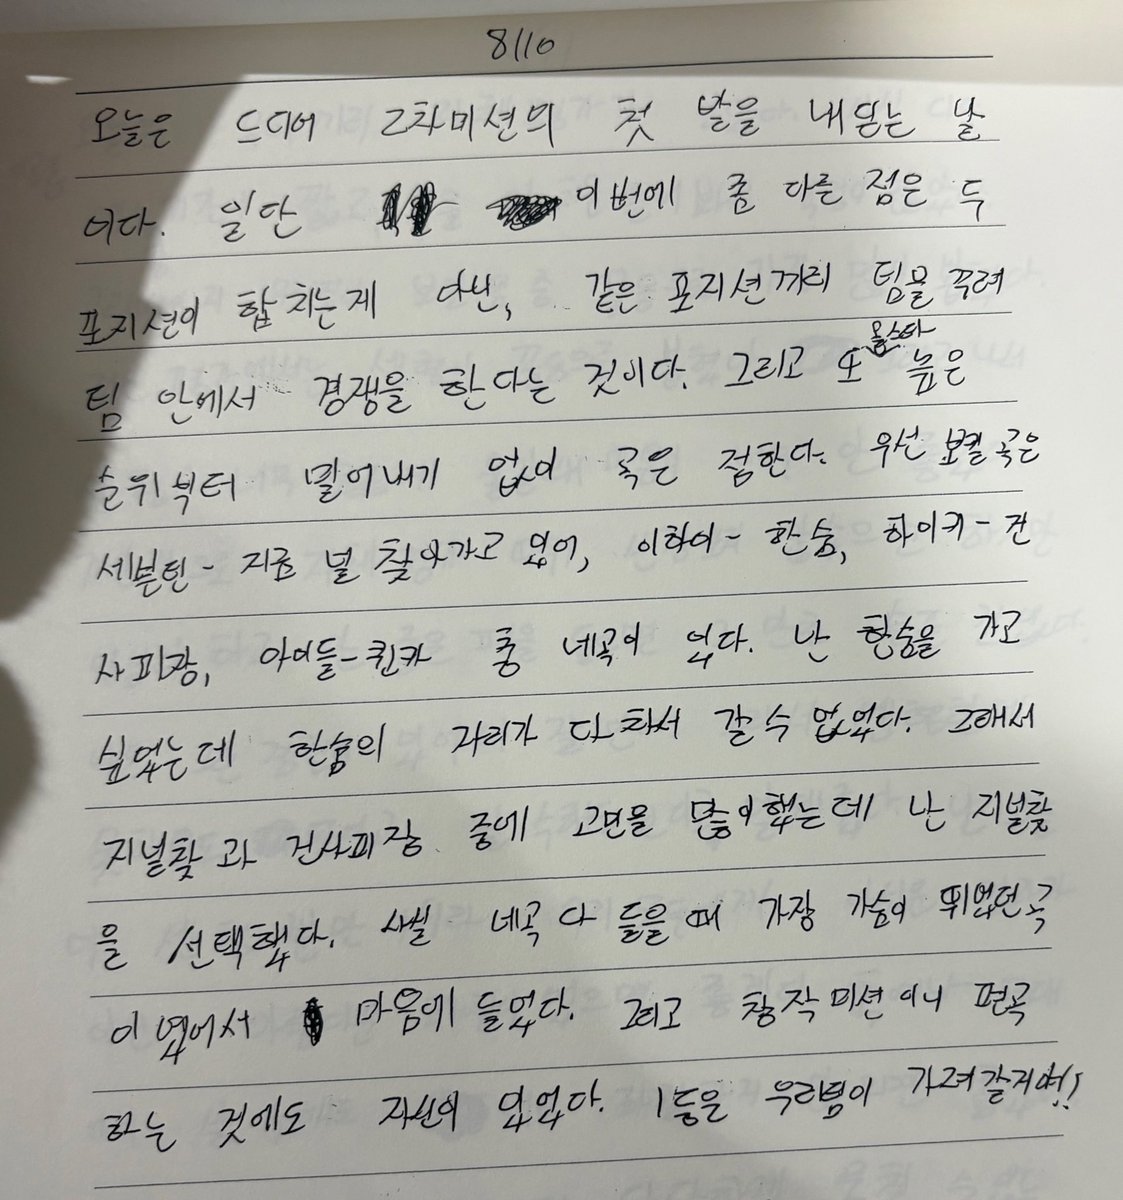 8/10
오늘은 드디어 2차미션의 첫 발을 내딛는 날
이다. 일단 이번에 좀 다른 점은 두
포지션이 합치는게 아닌, 같은 포지션끼리 팀을 꾸려
팀 안에서 경쟁을 한다는 것이다. 그리고 또 올스타 높은
순위부터 밀어내기 없이 곡은 정한다. 우선 보컬 곡은
세븐틴 - 지금 널 찾아가고 있어, 이하이 - 한숨, 하이키 - 건
사피장, 아이들 - 퀸카 총 네곡이 있다. 난 한숨을 가고
싶었는데 한숨의 자리가 다 차서 갈 수 없었다. 그래서
지널찾과 건사피장 중에 고민을 많이했는데 난 지널찾
을 선택했다. 사실 네곡 다 들을 때 가장 가슴이 뛰었던 곡
이였어서 마음에 들었다. 그리고 창작미션이니 편곡
하는 것에도 자신이 있었다. 1등은 우리팀이 가려갈거야!!